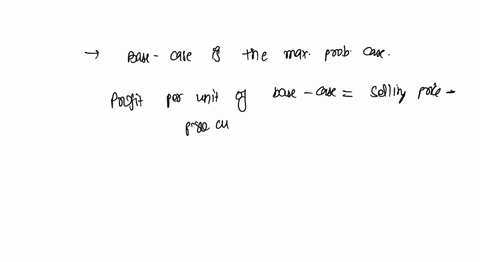 → Base - case is the max. prob. case.
Profit per unit of base - case = selling price -